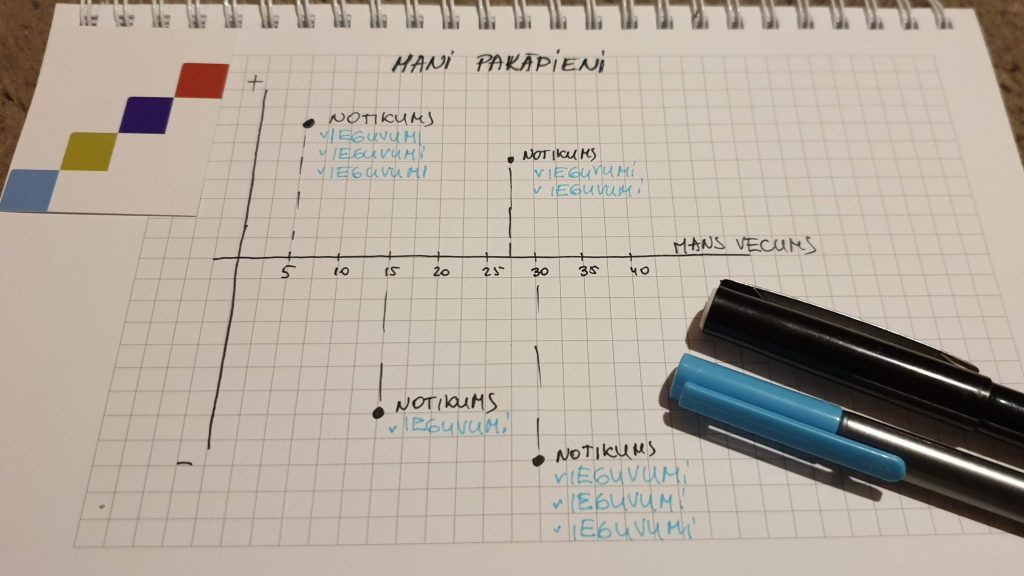 MANI PAKĀPIENI
+
NOTIKUMS
✓IEGUVUMI
✓IEGUVUMI
✓IEGUVUMI
NOTIKUMS
✓IEGUVUMI
✓IEGUVUMI
MANS VECUMS
5 10 15 20 25 30 35 40
NOTIKUMS
✓IEGUVUMI
−
NOTIKUMS
✓IEGUVUMI
✓IEGUVUMI
✓IEGUVUMI